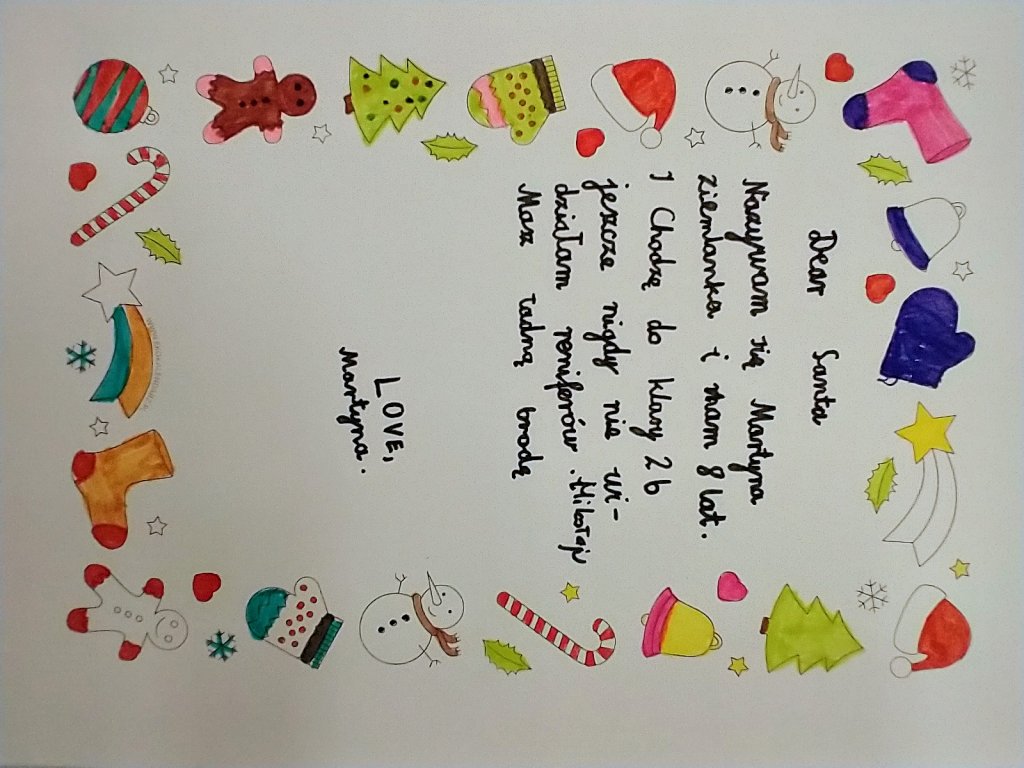 Dear Santa
Nazywam się Martyna
ziemlanka i mam 8 lat.
I Chodzę do klasy 2b
jeszcze nigdy nie wi-
działam reniferów. Mikołaju
Masz ładną brodę
LOVE,
Martyna.